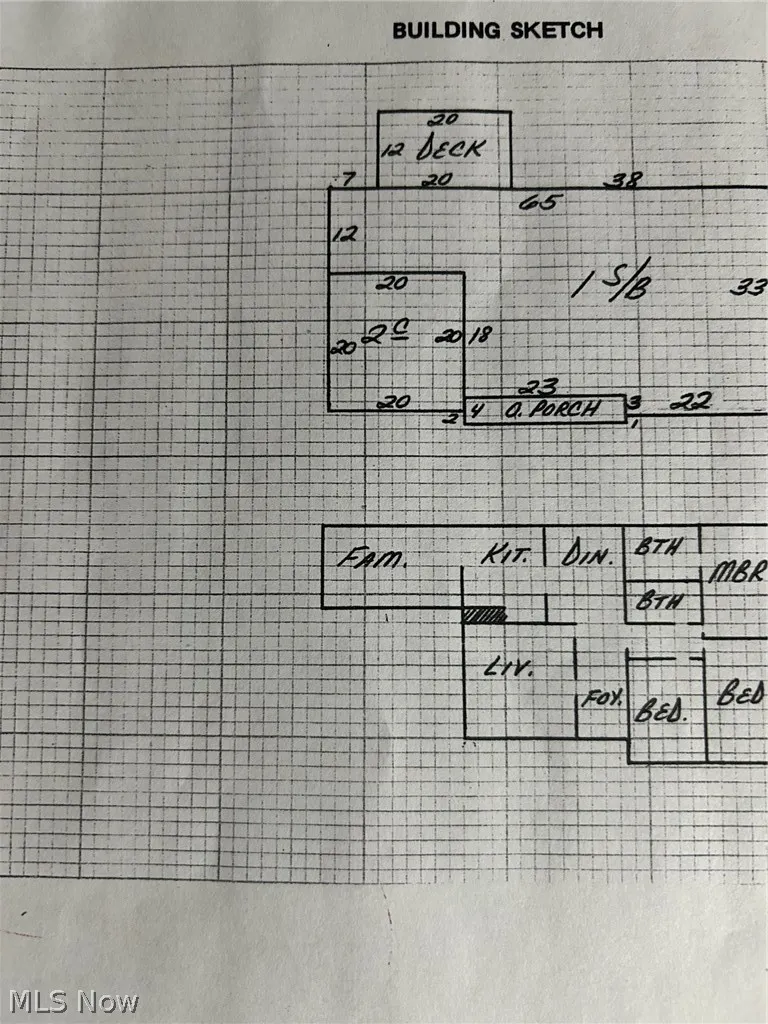 BUILDING SKETCH
20
12 DECK
7 20 38
65
12
20 1 S/B 33
20 2 C 20 18
23
20 2 4 O. PORCH 3 22
1
FAM. KIT. DIN. BTH
MBR
BTH
LIV.
FOY. BED. BED
MLS Now